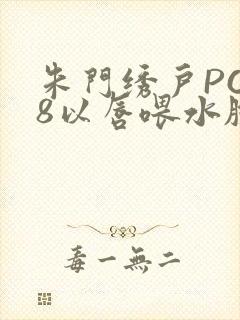 朱門绣戶PO
8以唇喂水
毒一無二